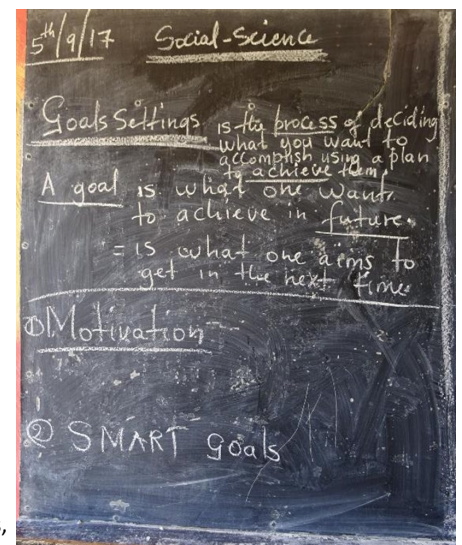 5th/9/17 Social-Science
Goals Settings is the process of deciding
what you want to
accomplish using a plan
to achieve them.
A goal is what one wants
to achieve in future.
= is what one aims to
get in the next time.
① Motivation
② SMART Goals